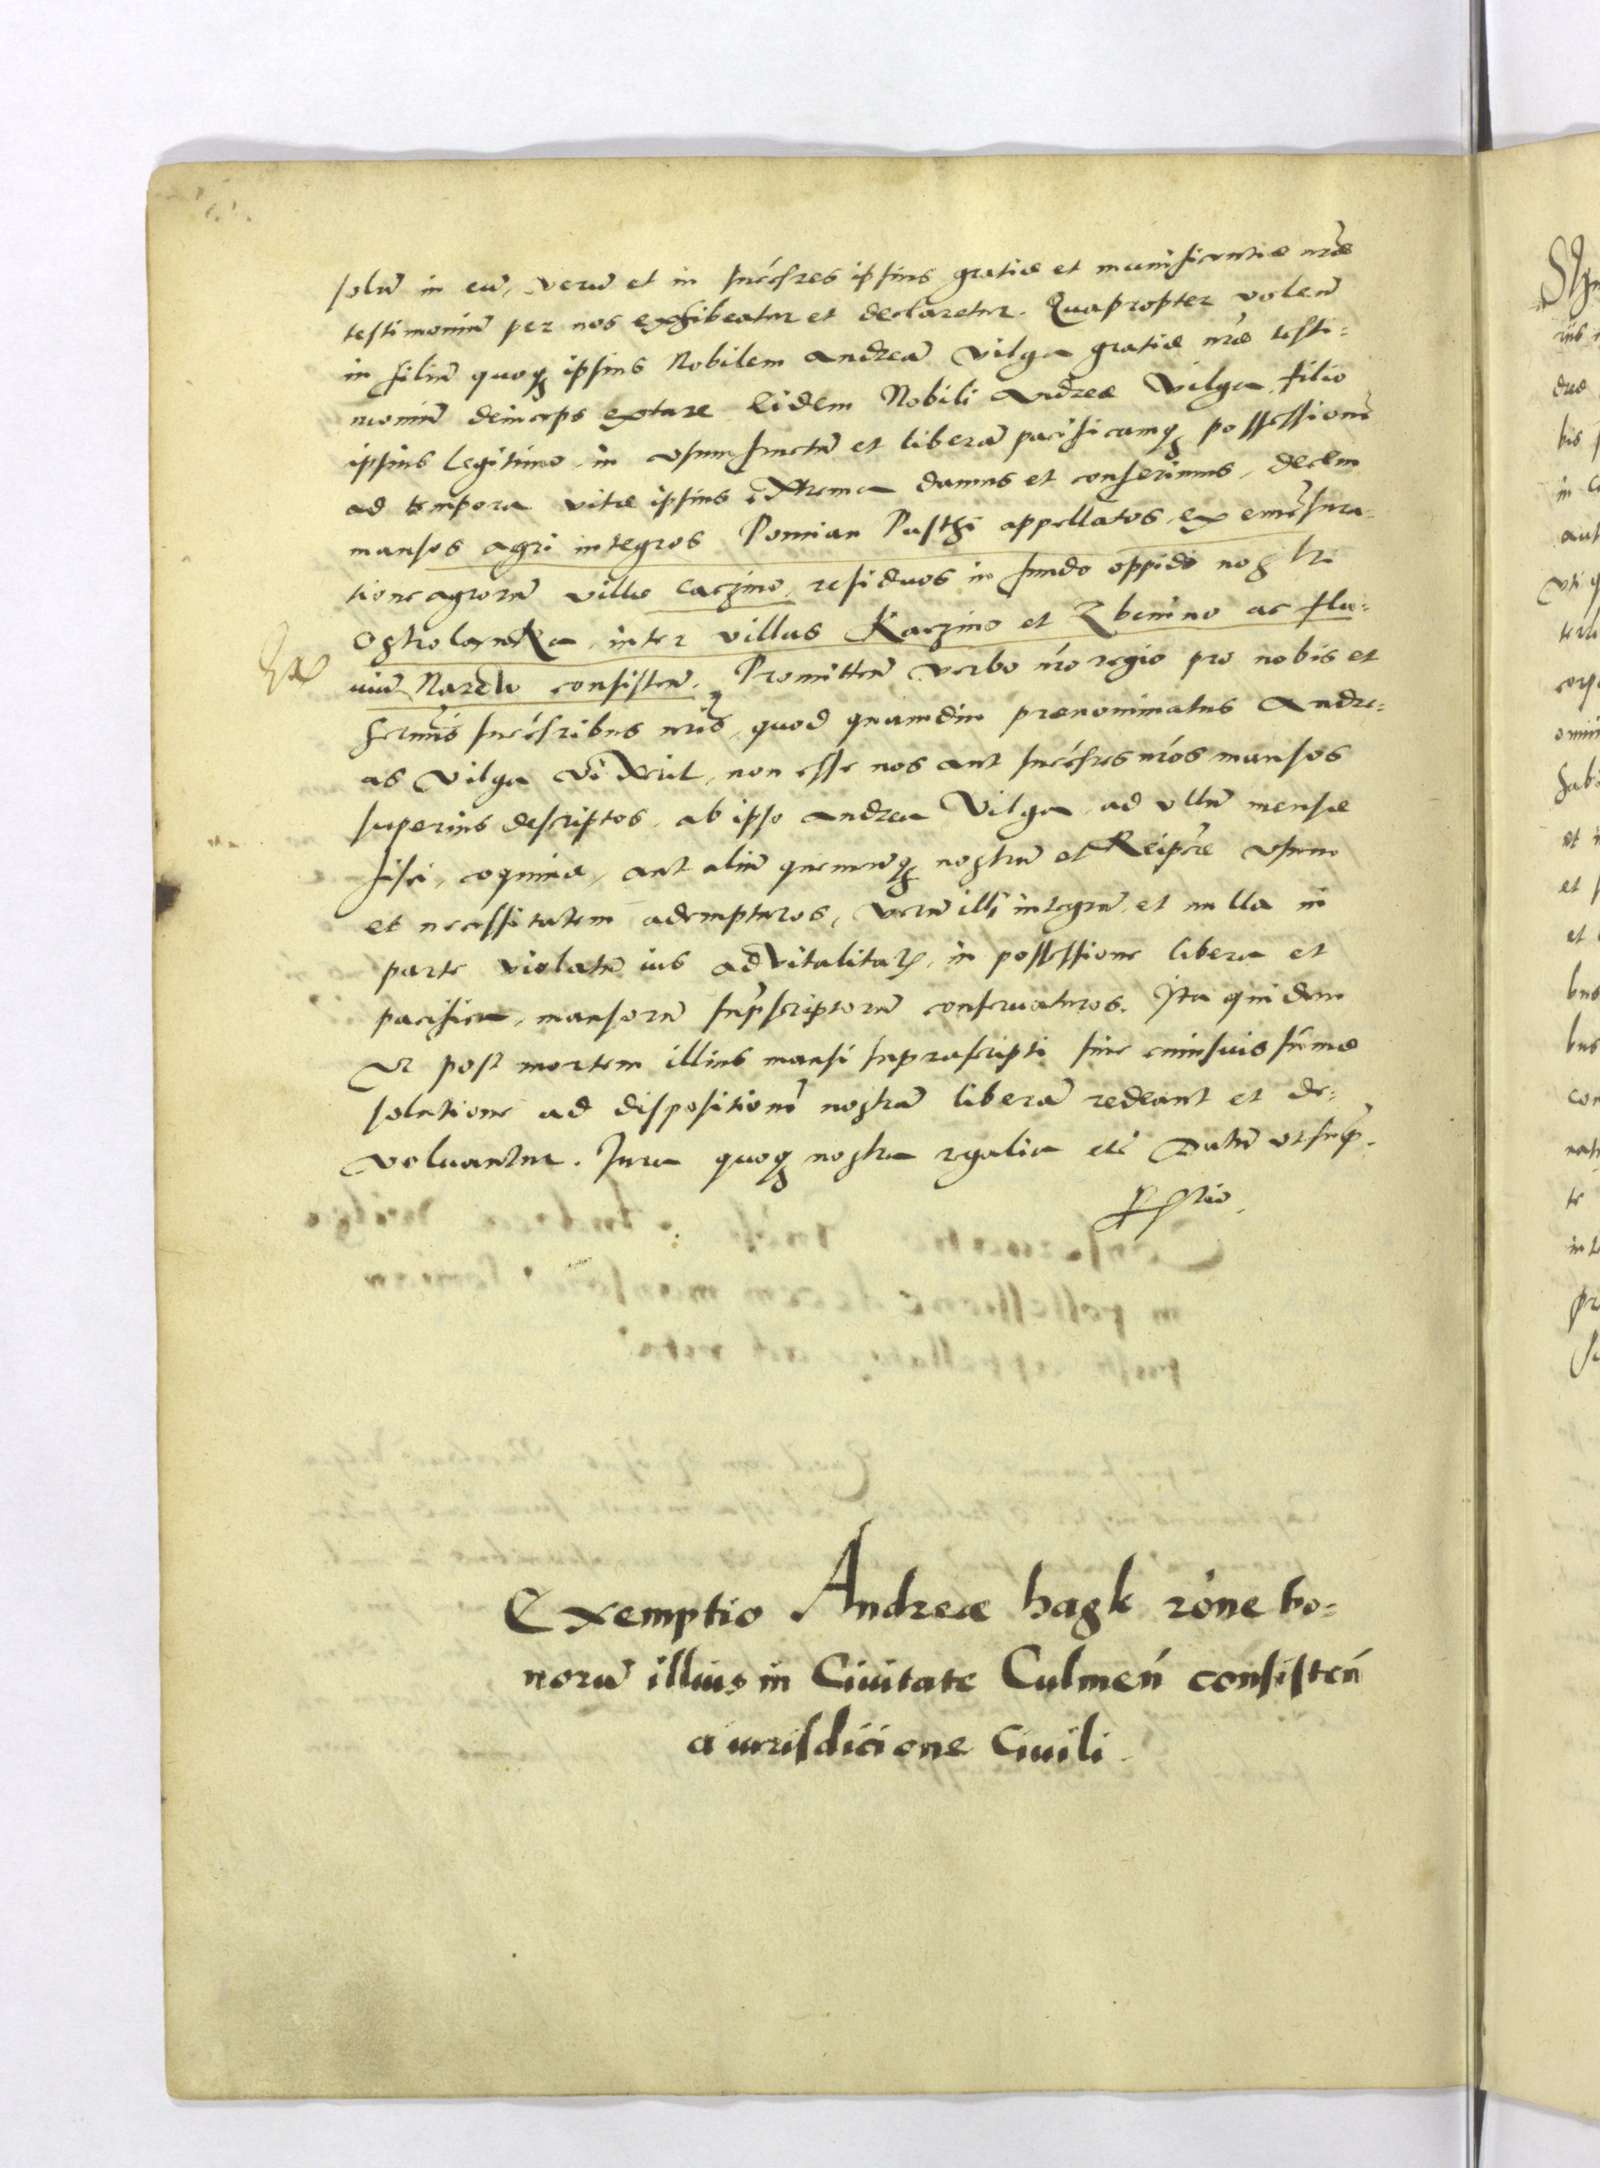 solũ in eũ, verũ et in succ̃res ipsius gratiæ et munificentiæ nr̃æ
testimoniũ per nos exhibeatur et declaretur. Quapropter volen̄
in filiũ quoq̨ ipsius Nobilem Andreã Vilga gratiæ nr̃æ testi=
moniũ deinceps extare Eidem Nobili Andreæ Vilga, filio
ipsius legitimo, in usumfructũ et liberã pacificamq̨ possessionẽ
ad tempora vitæ ipsius extrema damus et conferimus, decem
mansos agri integros Pomian Pusthi appellatos, ex emẽsura=
tione agrorũ villæ Caczino, residuos in fundo oppidi nostri
Ostrolanka, inter villas Kaczino et Zbenino ac flu=
uiũ Narew consisten̄. Promitten̄ verbo nr̃o regio pro nobis et
Serm̃is succ̃ribus nr̃is, quod quamdiu prænominatus Andre=
as Vilga vixerit, non esse nos aut succ̃res nr̃os mansos
superius descriptos, ab ipso Andrea Vilga, ad ullũ mensæ
fisci, coquinæ, aut aliũ quemcunq̨ nostrũ et Reipc̃æ usum
et necessitatem adempturos, verũ illi integrũ et nulla in
parte violatũ ius advitalitatis, in possessione libera et
pacifica, mansorũ sup̃scriptorũ conservaturos. Ita quidem
ut post mortem illius mansi suprascripti sine cuiusuis sum̃æ
solutione ad dispositionẽ nostrã liberã redeant et de=
voluantur. Jura quoq̨ nostra regalia etc̃ Datũ ut sup̃.
Exemptio Andreæ hagk rõne bo=
norũ illius in Ciuitate Culmen̄ consisten̄
a iurisdicione Ciuili.